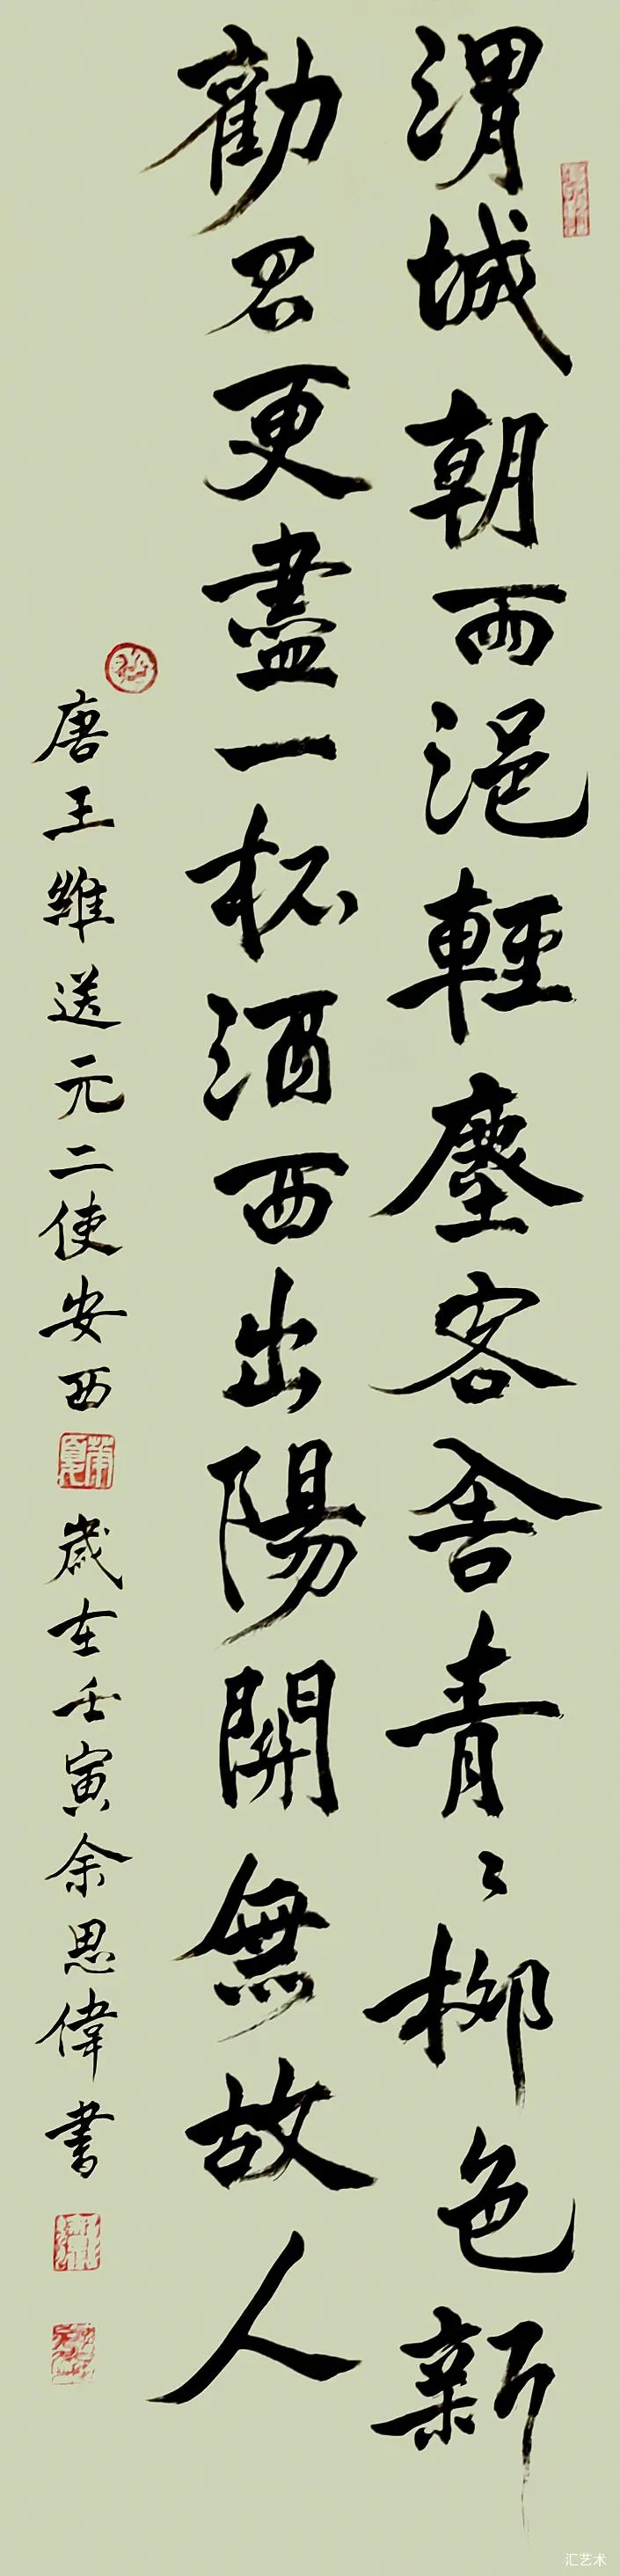 渭城朝雨浥輕塵客舍青〻柳色新
勸君更盡一杯酒西出陽關無故人
唐王維送元二使安西
歲在壬寅余思偉書
汇艺术